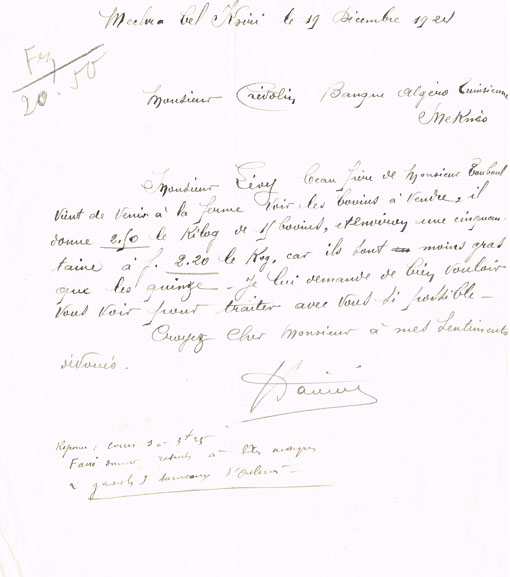 Mechra bel Ksiri le 19 Décembre 1924
20.50
Monsieur Banque Algéro Tunisienne
Meknès
Monsieur Lévy beau frère de Monsieur Touboul
vient de venir à la ferme voir les bovins à vendre, il
donne 2.50 le Kilog de 15 bovins, et environ une cinquan-
taine à f. 2.20 le Kog, car ils sont moins gras
que les quinze - Je lui demande de bien vouloir
vous voir pour traiter avec vous si possible -
Croyez Cher Monsieur à mes Sentiments
dévoués.
Réponse :
Faire à bêtes maigres